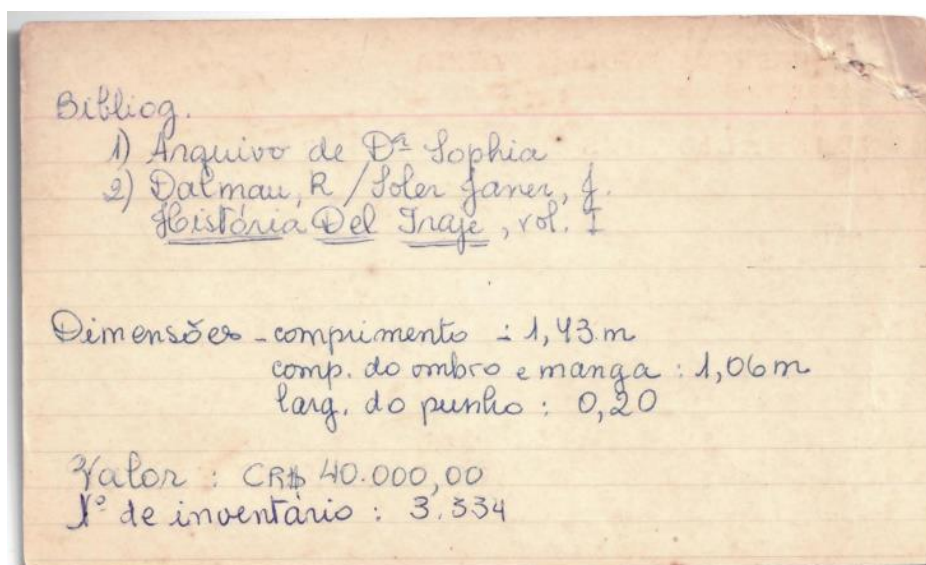 Bibliog.
1) Arquivo de Dª Sophia
2) Dalmau, R / Soler Janer, J.
História Del Traje, vol. I
Dimensões - comprimento : 1,43 m
comp. do ombro e manga : 1,06 m
larg. do punho : 0,20
Valor : CR$ 40.000,00
Nº de inventário : 3.334